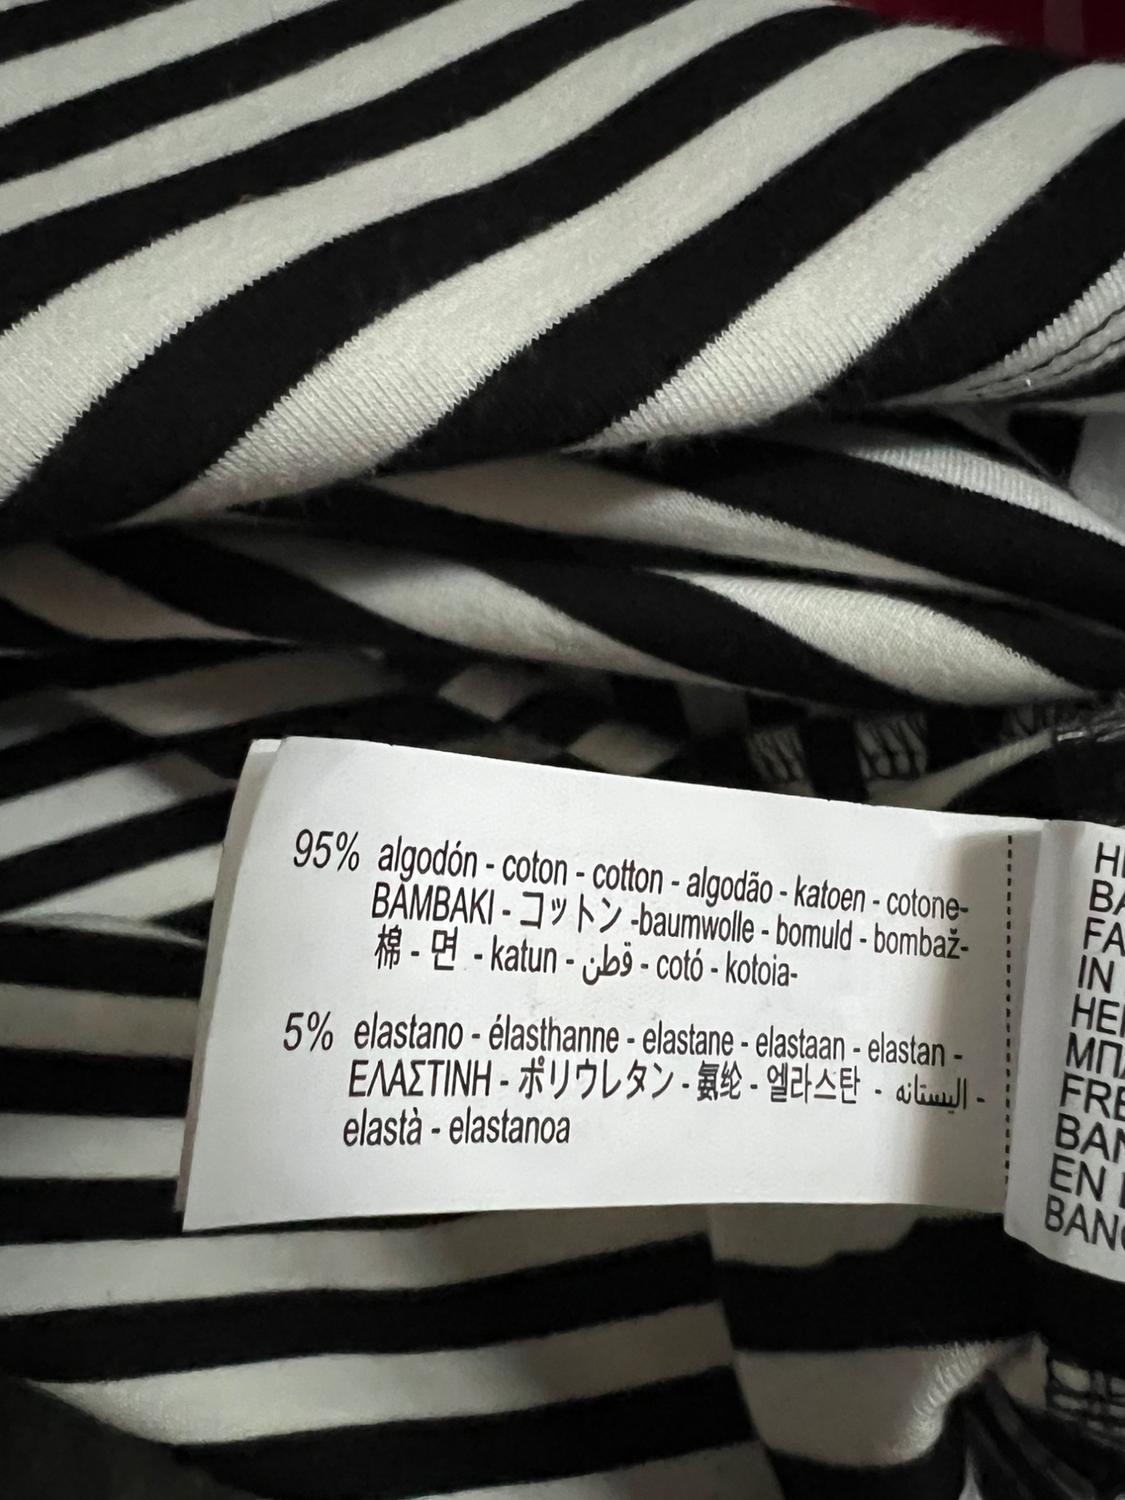 95% algodón - coton - cotton - algodão - katoen - cotone-
BAMBAKI - コットン -baumwolle - bomuld - bombaž-
棉 - 면 - katun - قطن - cotó - kotoia-
5% elastano - élasthanne - elastane - elastaan - elastan -
ΕΛΑΣΤΙΝΗ - ポリウレタン - 氨纶 - 엘라스탄 - اليستانه -
elastà - elastanoa
IN
EN